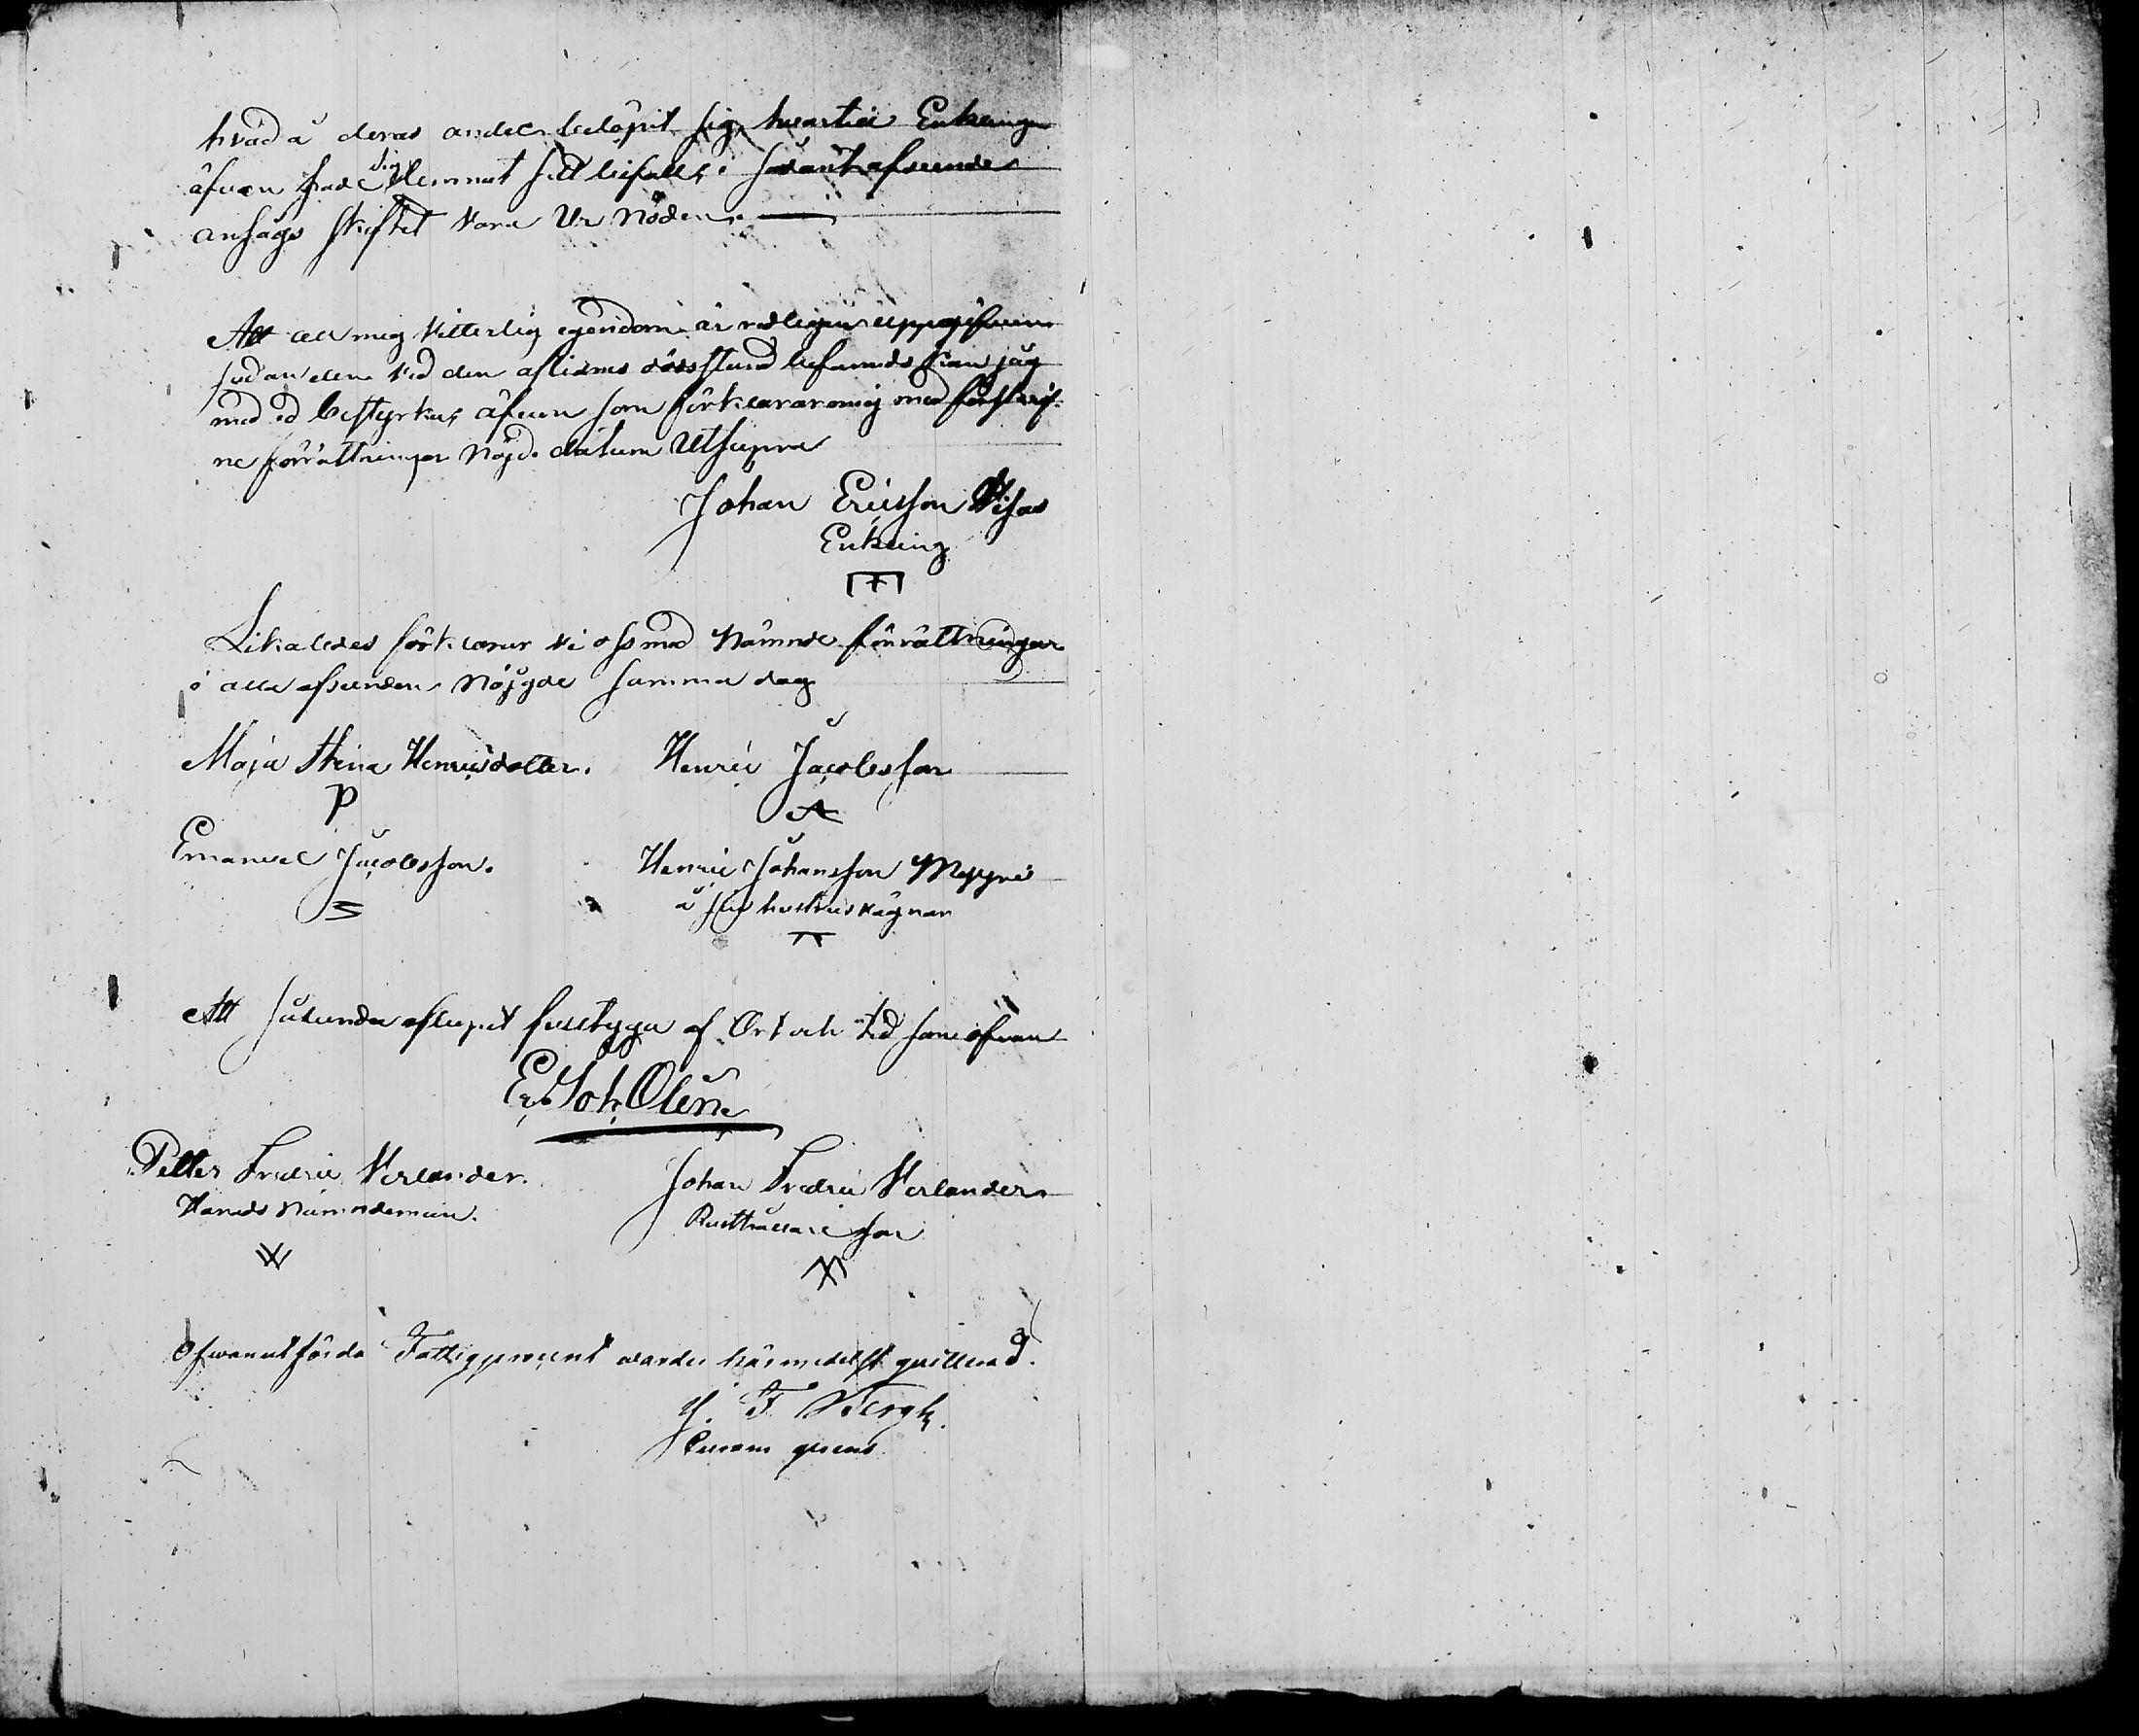 hvad å deras andel belöpit sig, hvartill Enklingen
äfven hade sig lemnat sitt bifall, i sådant afseende
ansågs skiftet vara Ur Nöden.
Att all mig Vitterlig egendom är redligen uppgifven
sådan den Vid den aflidnes dödsstund befanns kan jag
med ed bestyrka, äfven som förklarar mig med
ne förrättningar Nöjd. datum Utsupra
Johan Ericsson
Enkling
Likaledes förklarar Vi oss med Nämnde förrättningar
i alla afseenden Nöjgde samma dag
Maja Stina Henricsdotter. Henric Jacobsson
P A
Emanuel Jacobsson. Henric Johansson
å sin hustrus vägnar
Att sålunda aflupit fulltyga af Ort och tid som ofvan
Er. Joh. Olén
Petter Fredric Verlander. Johan Fredric Verlander
Härads Nämndeman. Rusthållare son
Ofvanutförda Fattigprocent varder härmedelst qvitterad.
J. F. Bergh.
Curam gerens